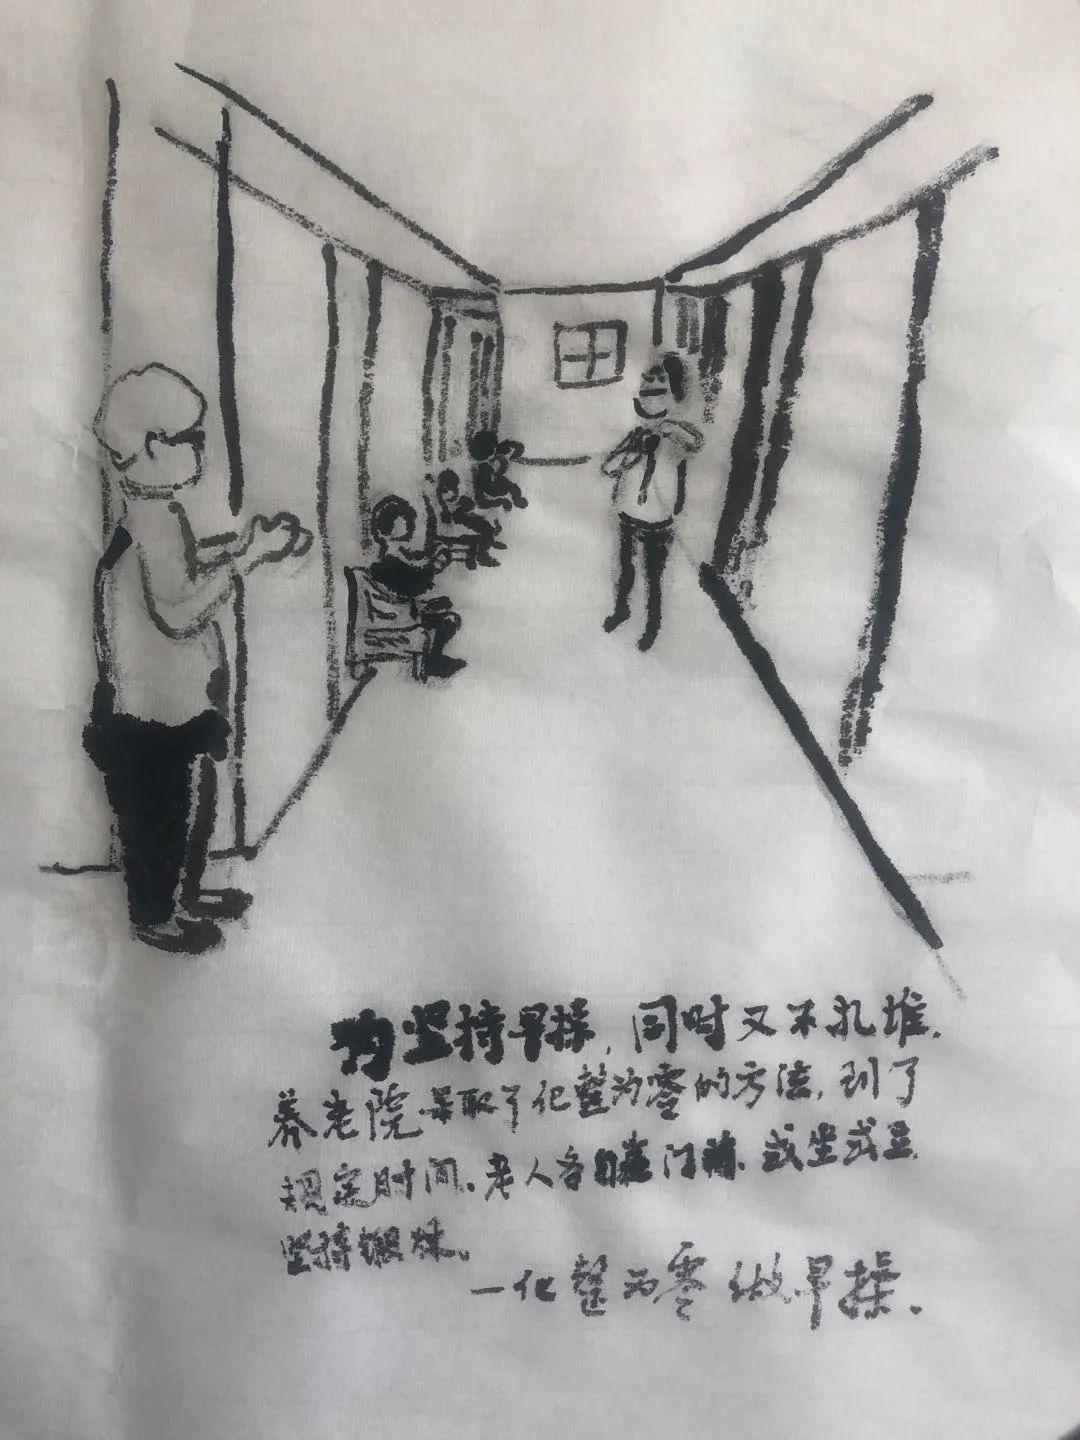 为坚持早操,同时又不扎堆.
养老院采取了化整为零的方法,到了
规定时间.老人各自在门前.或坐或立.
坚持锻炼。
一化整为零做早操.